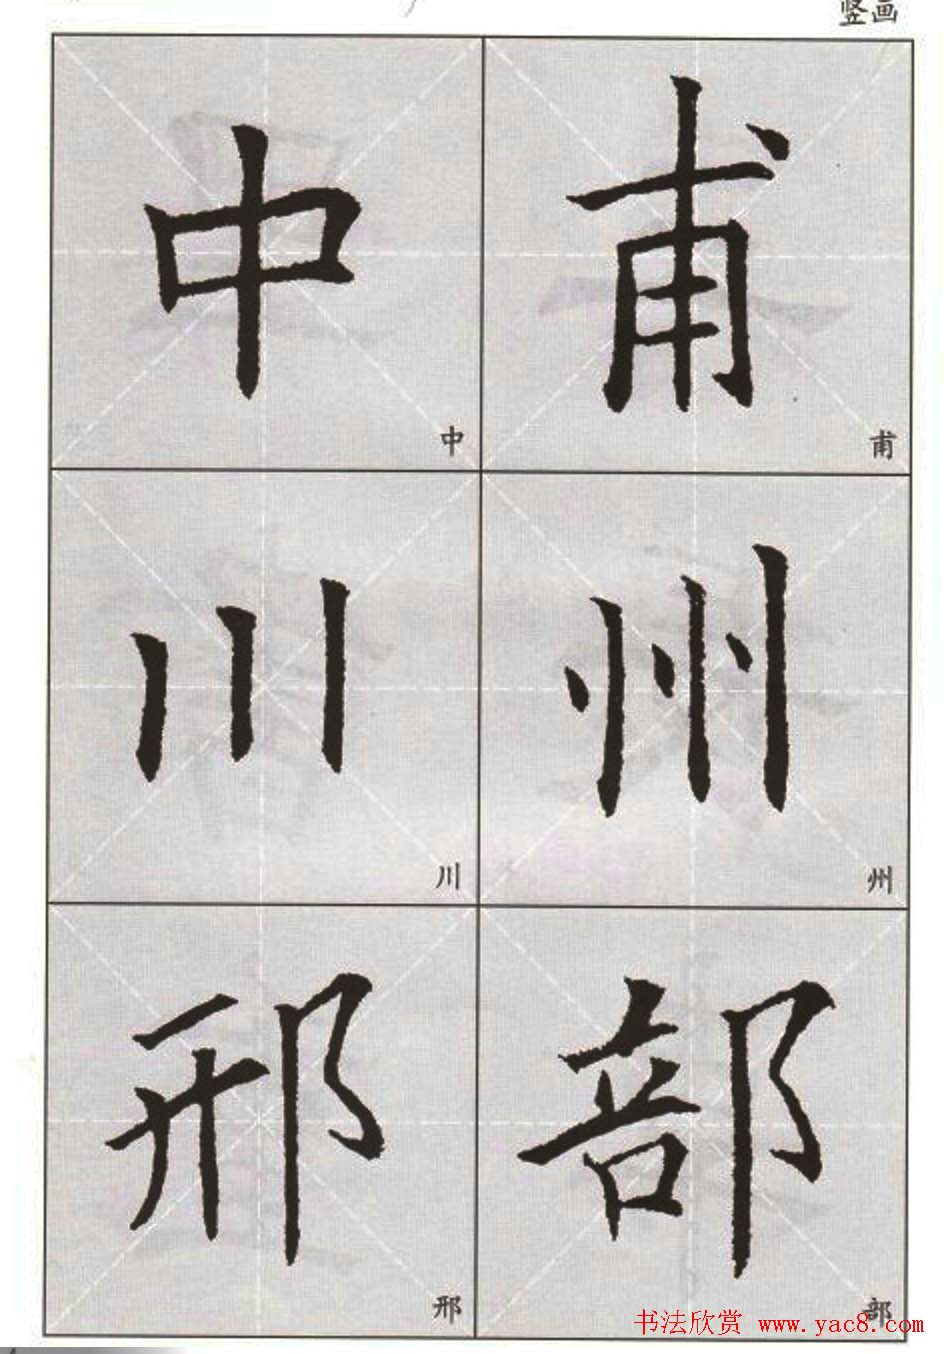 竖画
中 甫
中 甫
川 州
川 州
邢 部
邢 部
书法欣赏 www.yac8.com